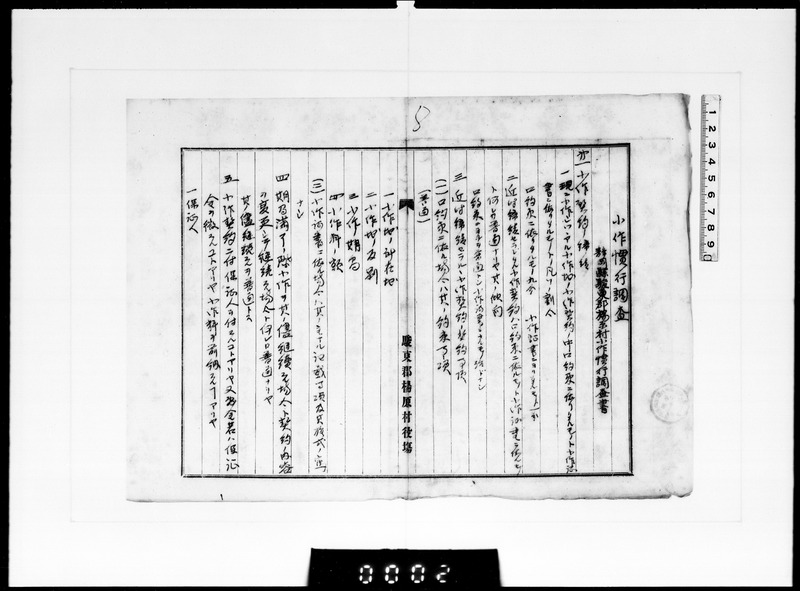 小作慣行調査
静岡縣駿東郡楊原村小作慣行調査書
第一 小作契約ノ締結
一 現ニ小作シツヽアル小作地ノ小作契約中口約束ニ依リタルモノト小作証
書ニ依リタルモノトノ凡ソノ割合
口約束ニ依リタルモノ九分 小作証書ニヨリタルモノ一分
二 近時締結セラレタル小作契約ハ口約束ニ依ルモノト小作証書ニ依ルモノ
ト何レカ普通ナリヤ其ノ傾向
口約束ニヨルヲ普通トシ小作証書ニヨルモノ殆ドナシ
三 近時締結セラレタル小作契約ノ契約事項
(一) 口約束ニ依ル場合ハ其ノ約束事項
(普通)
一 小作地ノ所在地
二 小作地ノ反別
三 小作期間
四 小作料ノ額
駿東郡楊原村役場
(三) 小作証書ニ依ル場合ハ其ノ記載事項及其様式ノ
ナシ
四 期間満了ノ際小作ヲ其ノ儘継続スル場合ト契約ノ内容
ヲ変更シテ継続スル場合ト何レカ普通ナリヤ
其ノ儘継続スルヲ普通トス
五 小作契約ニ付保証人ヲ付スルコトアリヤ又敷金若ハ保証
金ヲ徴スルコトアリヤ小作料ヲ前納スル事アリヤ
一 保証人
5
1 2 3 4 5 6 7 8 9
0002